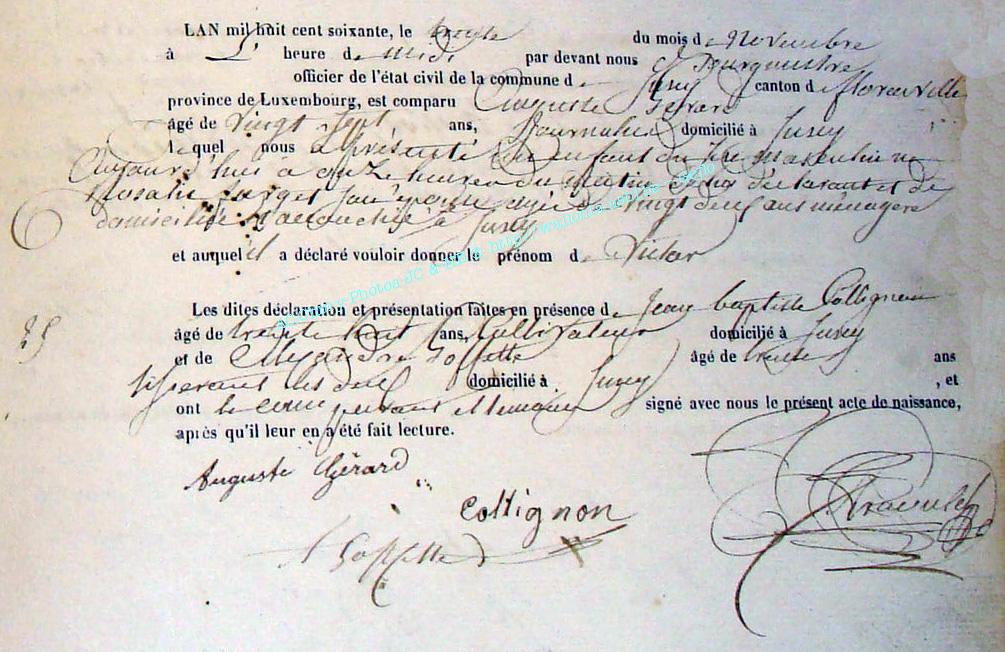 LAN mil huit cent soixante, le trente du mois de Novembre
à L' heure de midi par devant nous Bourgmestre
officier de l'état civil de la commune de Jusey canton de florenville
province de Luxembourg, est comparu Auguste Gerard
âgé de vingt sept ans, Journalier domicilié à Jusey
lequel nous a présenté un enfant du sexe masculin né
Aujourd'hui à onze heures du matin de lui déclarant et de
Rosalie son épouse agée de vingt deux ans ménagère
domiciliée à Jusey
et auquel il a déclaré vouloir donner le prénom de Victor
Les dites déclaration et présentation faites en présence de Jean baptiste Collignon
25
âgé de trente huit ans, Cultivateur domicilié à Jusey
et de Alexandre Goffette âgé de trente ans
tisserant les deux domicilié à Jusey , et
ont le comparant et temoins signé avec nous le présent acte de naissance,
après qu'il leur en a été fait lecture.
Auguste Gérard
Collignon
A Goffette